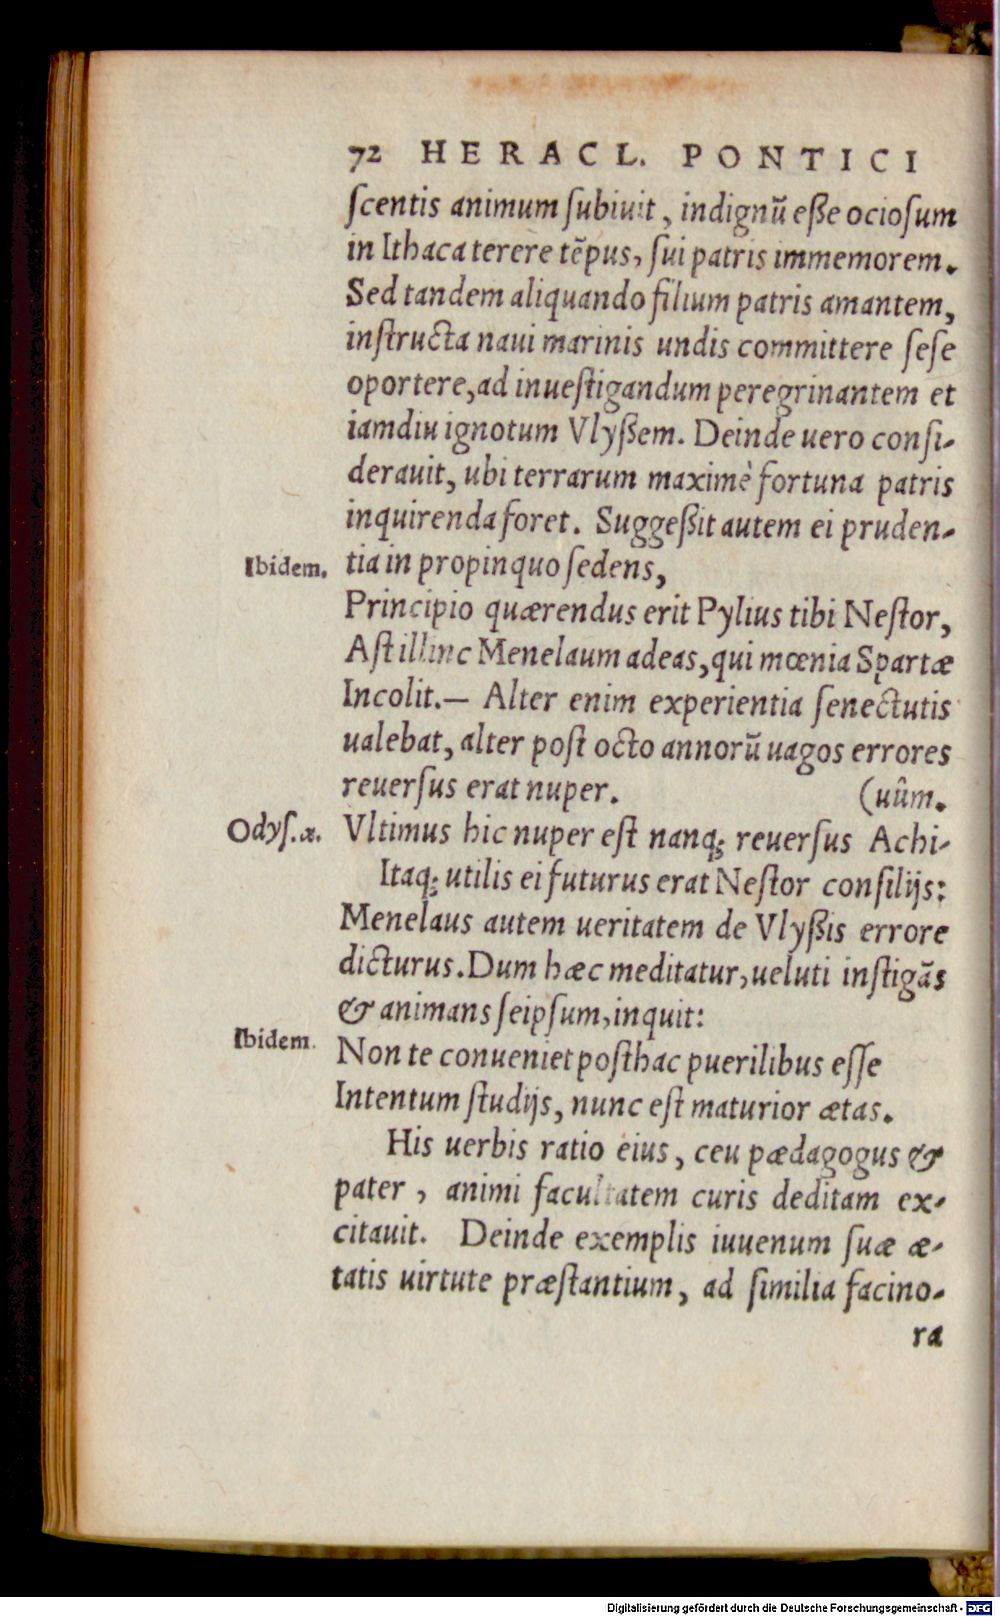 72 HERACL. PONTICI
ſcentis animum ſubiuit, indignũ eße ocioſum
in Ithaca terere tẽpus, ſui patris immemorem.
Sed tandem aliquando filium patris amantem,
inſtructa naui marinis undis committere ſeſe
oportere, ad inueſtigandum peregrinantem et
iamdiu ignotum Vlyßem. Deinde uero conſi-
derauit, ubi terrarum maximè fortuna patris
inquirenda foret. Suggeßit autem ei pruden-
Ibidem. tia in propinquo ſedens,
Principio quærendus erit Pylius tibi Neſtor,
Aſt illinc Menelaum adeas, qui mœnia Spartæ
Incolit.— Alter enim experientia ſenectutis
ualebat, alter poſt octo annorũ uagos errores
reuerſus erat nuper. (uûm.
Odyſ.æ. Vltimus hic nuper eſt nanq; reuerſus Achi-
Itaq; utilis ei futurus erat Neſtor conſilijs:
Menelaus autem ueritatem de Vlyßis errore
dicturus. Dum hæc meditatur, ueluti inſtigãs
& animans ſeipſum, inquit:
Ibidem. Non te conueniet poſthac puerilibus eſſe
Intentum ſtudijs, nunc eſt maturior ætas.
His uerbis ratio eius, ceu pædagogus &
pater, animi facultatem curis deditam ex-
citauit. Deinde exemplis iuuenum ſuæ æ-
tatis uirtute præſtantium, ad ſimilia facino-
ra
Digitalisierung gefördert durch die Deutsche Forschungsgemeinschaft - DFG